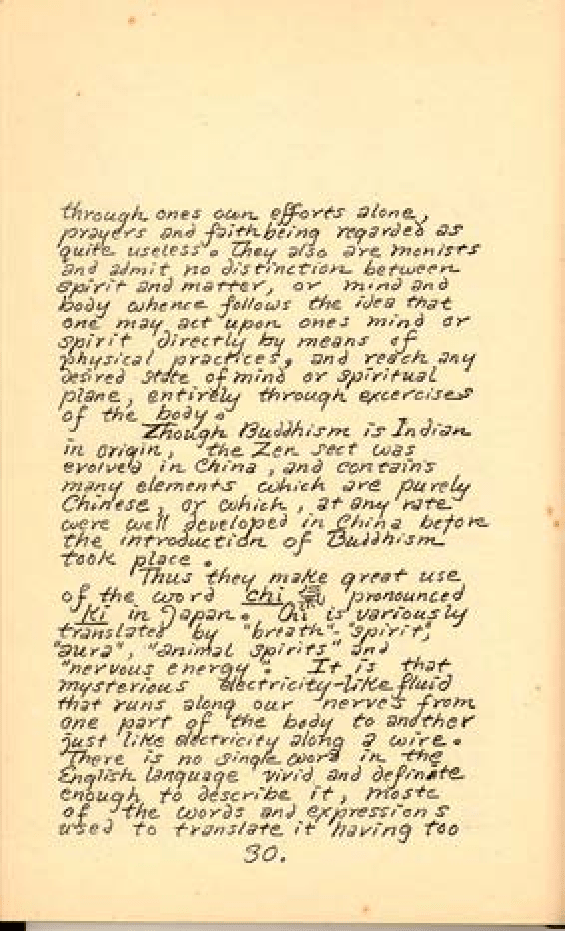 through ones own efforts alone,
prayers and faith being regarded as
quite useless. They also are monists
and admit no distinction between
spirit and matter, or mind and
body whence follows the idea that
one may act upon ones mind or
spirit directly by means of
physical practices, and reach any
desired state of mind or spiritual
plane, entirely through excercises
of the body.
Though Buddhism is Indian
in origin, the Zen sect was
evolved in China, and contains
many elements which are purely
Chinese, or which, at any rate
were well developed in China before
the introduction of Buddhism
took place.
Thus they make great use
of the word chi 氣 pronounced
ki in Japan. Chi is variously
translated by "breath"- "spirit",
"aura", "animal spirits" and
"nervous energy". It is that
mysterious electricity-like fluid
that runs along our nerves from
one part of the body to another
just like electricity along a wire.
There is no single word in the
English language vivid and definate
enough to describe it, moste
of the words and expressions
used to translate it having too
30.